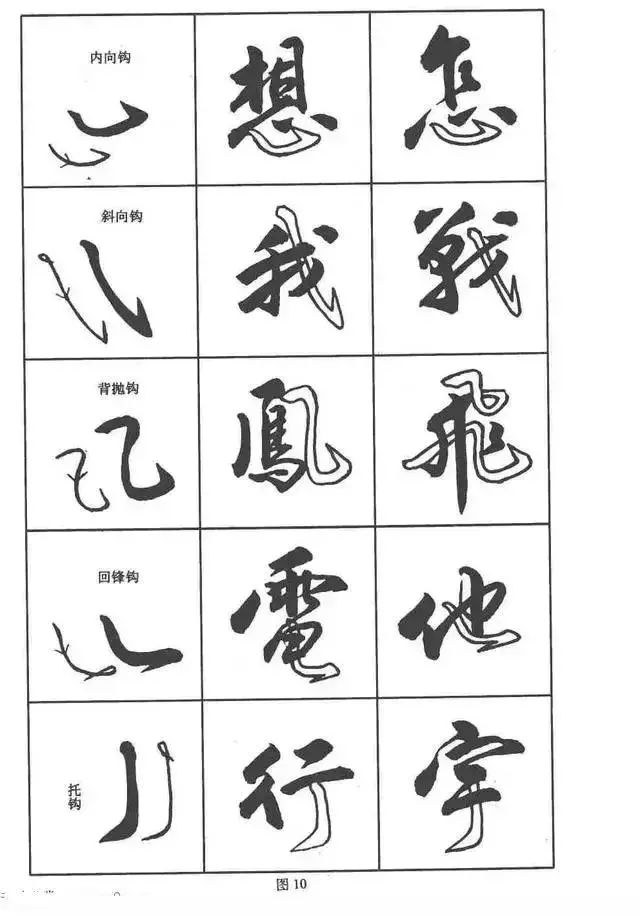 内向钩 想 怎
斜向钩 我 戰
背抛钩 鳳 飛
回锋钩 電 他
托钩 行 宇
图 10